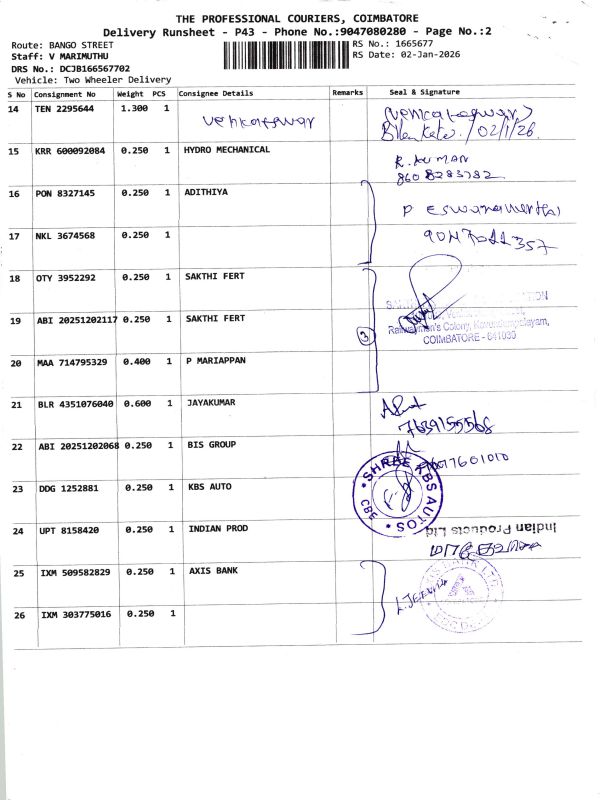 THE PROFESSIONAL COURIERS, COIMBATORE
Delivery Runsheet - P43 - Phone No.:9047080280 - Page No.:2
Route: BANGO STREET
RS No.: 1665677
Staff: V MARIMUTHU
RS Date: 02-Jan-2026
DRS No.: DCJB166567702
Vehicle: Two Wheeler Delivery
S No Consignment No Weight PCS Consignee Details Remarks Seal & Signature
14 TEN 2295644 1.300 1 Venkateswar
02/1/26
15 KRR 600092084 0.250 1 HYDRO MECHANICAL R.KUMAN
8608283782
16 PON 8327145 0.250 1 ADITHIYA
17 NKL 3674568 0.250 1
18 OTY 3952292 0.250 1 SAKTHI FERT
19 ABI 20251202117 0.250 1 SAKTHI FERT
Railwaymen's Colony,
COIMBATORE - 641030
3
20 MAA 714795329 0.400 1 P MARIAPPAN
21 BLR 4351076040 0.600 1 JAYAKUMAR
7639155568
22 ABI 20251202068 0.250 1 BIS GROUP
23 DDG 1252881 0.250 1 KBS AUTO
SHREE KBS AUTOS
CBE
24 UPT 8158420 0.250 1 INDIAN PROD Indian Products Ltd
25 IXM 509582829 0.250 1 AXIS BANK
26 IXM 303775016 0.250 1